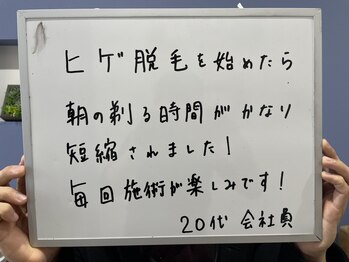 ヒゲ脱毛を始めたら
朝の剃る時間がかなり
短縮されました！
毎回施術が楽しみです！
20代 会社員